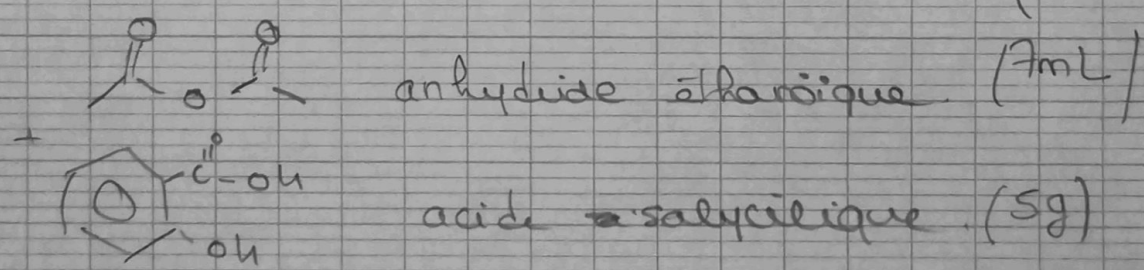 O O
O anhydride éthanoïque (7mL)
+
O
C-OH
acide salycilique (5g)
OH